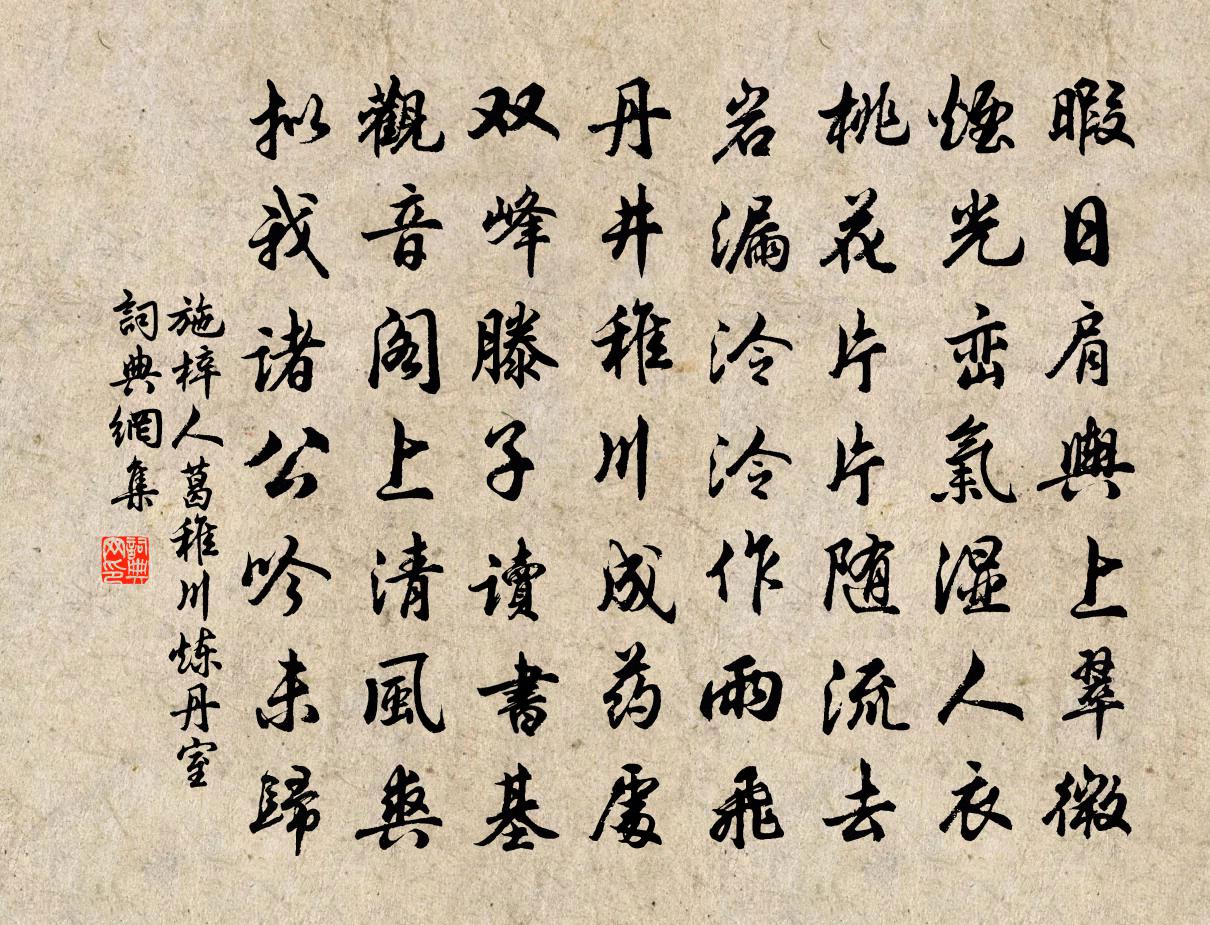 暇日肩輿上翠微
煙光峦氣湿人衣
桃花片片随流去
岩漏泠泠作雨飛
丹井稚川成药處
双峰滕子讀書基
觀音阁上清風爽
拟我诸公吟未歸
施梓人葛稚川炼丹室
詞典網集
詞典網印